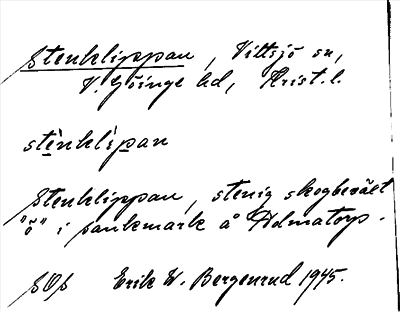 Stenklippan, Vittsjö sn,
V. Göinge hd, Krist. l.
stènklìpan
Stenklippan, stenig skogbeväxt
"ö" i sankmark å Holmatorp.
SOS Erik W. Bergenrud 1945.